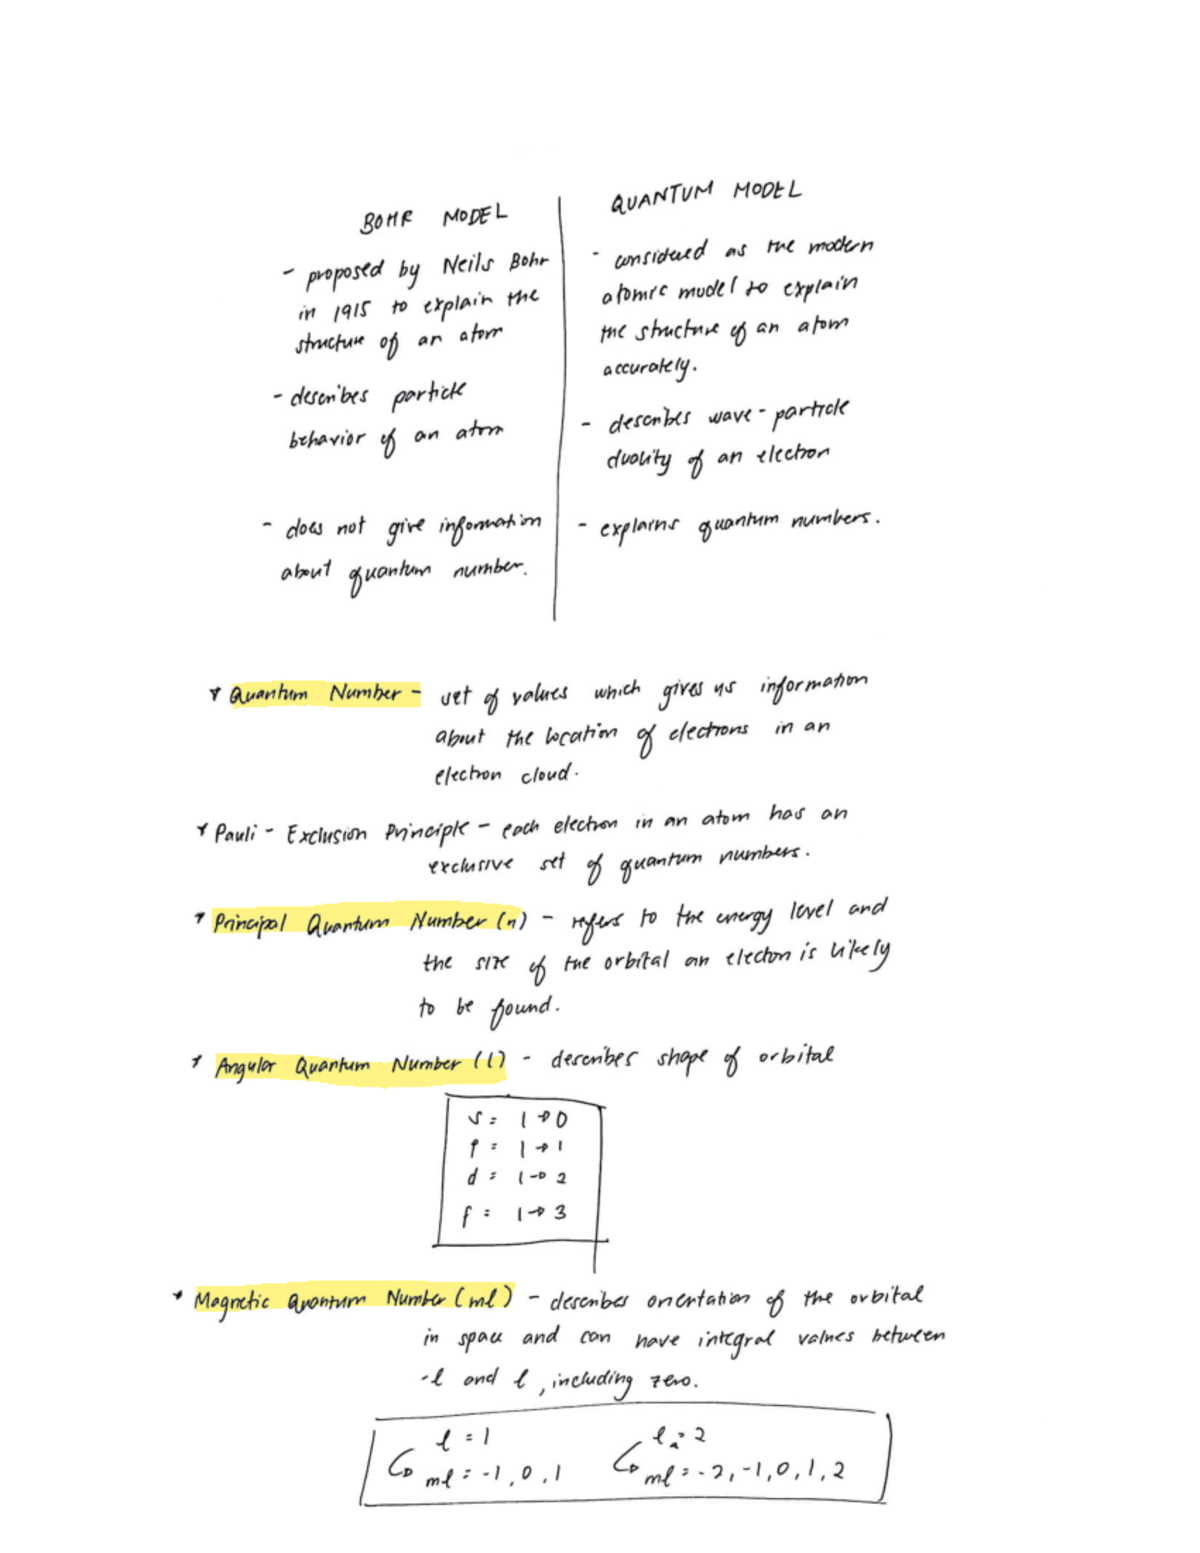 BOHR MODEL
- proposed by Neils Bohr
in 1915 to explain the
structure of an atom
- describes particle
behavior of an atom
- does not give information
about quantum number.
QUANTUM MODEL
- considered as the modern
atomic model to explain
the structure of an atom
accurately.
- describes wave-particle
duality of an electron
- explains quantum numbers.
* Quantum Number - set of values which gives us information
about the location of electrons in an
electron cloud.
* Pauli - Exclusion Principle - each electron in an atom has an
exclusive set of quantum numbers.
* Principal Quantum Number (n) - refers to the energy level and
the size of the orbital an electon is likely
to be found.
* Angular Quantum Number (l) - describes shape of orbital
s = l → 0
p = l → 1
d = l → 2
f = l → 3
* Magnetic Quantum Number (ml) - describes orientation of the orbital
in space and can have integral values between
-l and l, including zero.
l = 1
ml = -1, 0, 1
l = 2
ml = -2, -1, 0, 1, 2